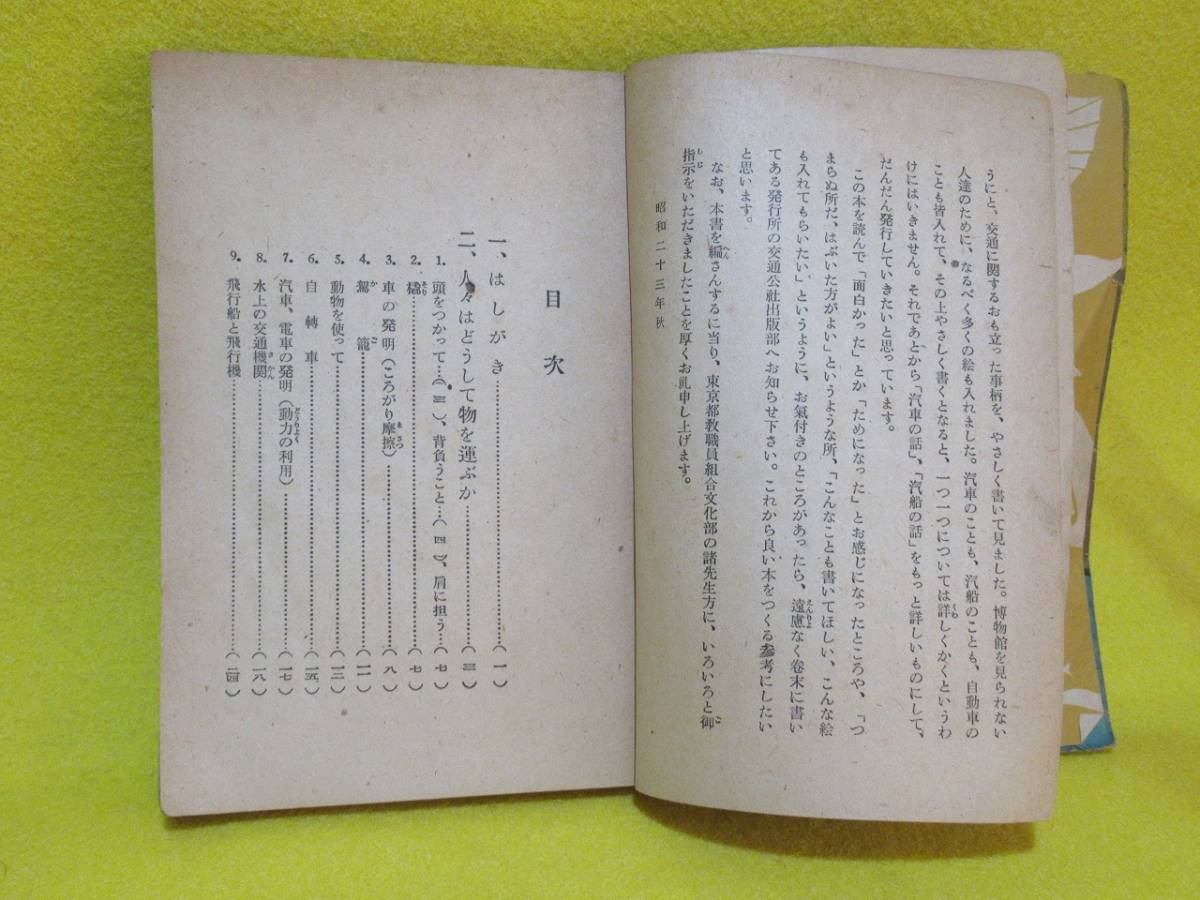 うにと、交通に関するおも立った事柄を、やさしく書いて見ました。博物館を見られない
人達のために、なるべく多くの絵も入れました。汽車のことも、汽船のことも、自動車の
ことも皆入れて、その上やさしく書くとなると、一つ一つについては詳しくかくというわ
けにはいきません。それであとから「汽車の話」、「汽船の話」をもっと詳しいものにして、
だんだん発行していきたいと思っています。
この本を読んで「面白かった」とか「ためになった」とお感じになったところや、「つ
まらぬ所だ、はぶいた方がよい」というような所、「こんなことも書いてほしい、こんな絵
も入れてもらいたい」というように、お氣付きのところがあったら、遠慮なく卷末に書い
てある発行所の交通公社出版部へお知らせ下さい。これから良い本をつくる参考にしたい
と思います。
なお、本書を編さんするに当り、東京都教職員組合文化部の諸先生方に、いろいろと御
指示をいただきましたことを厚くお礼申し上げます。
昭和二十三年秋
目次
一、はしがき……(一)
二、人々はどうして物を運ぶか……(三)
1. 頭をつかって…(三)、背負うこと…(四)、肩に担う…(七)
2. 橇……(七)
3. 車の発明(ころがり摩擦)……(八)
4. 駕籠……(一一)
5. 動物を使って……(一三)
6. 自轉車……(一五)
7. 汽車、電車の発明(動力の利用)……(一七)
8. 水上の交通機関……(一八)
9. 飛行船と飛行機……(二四)